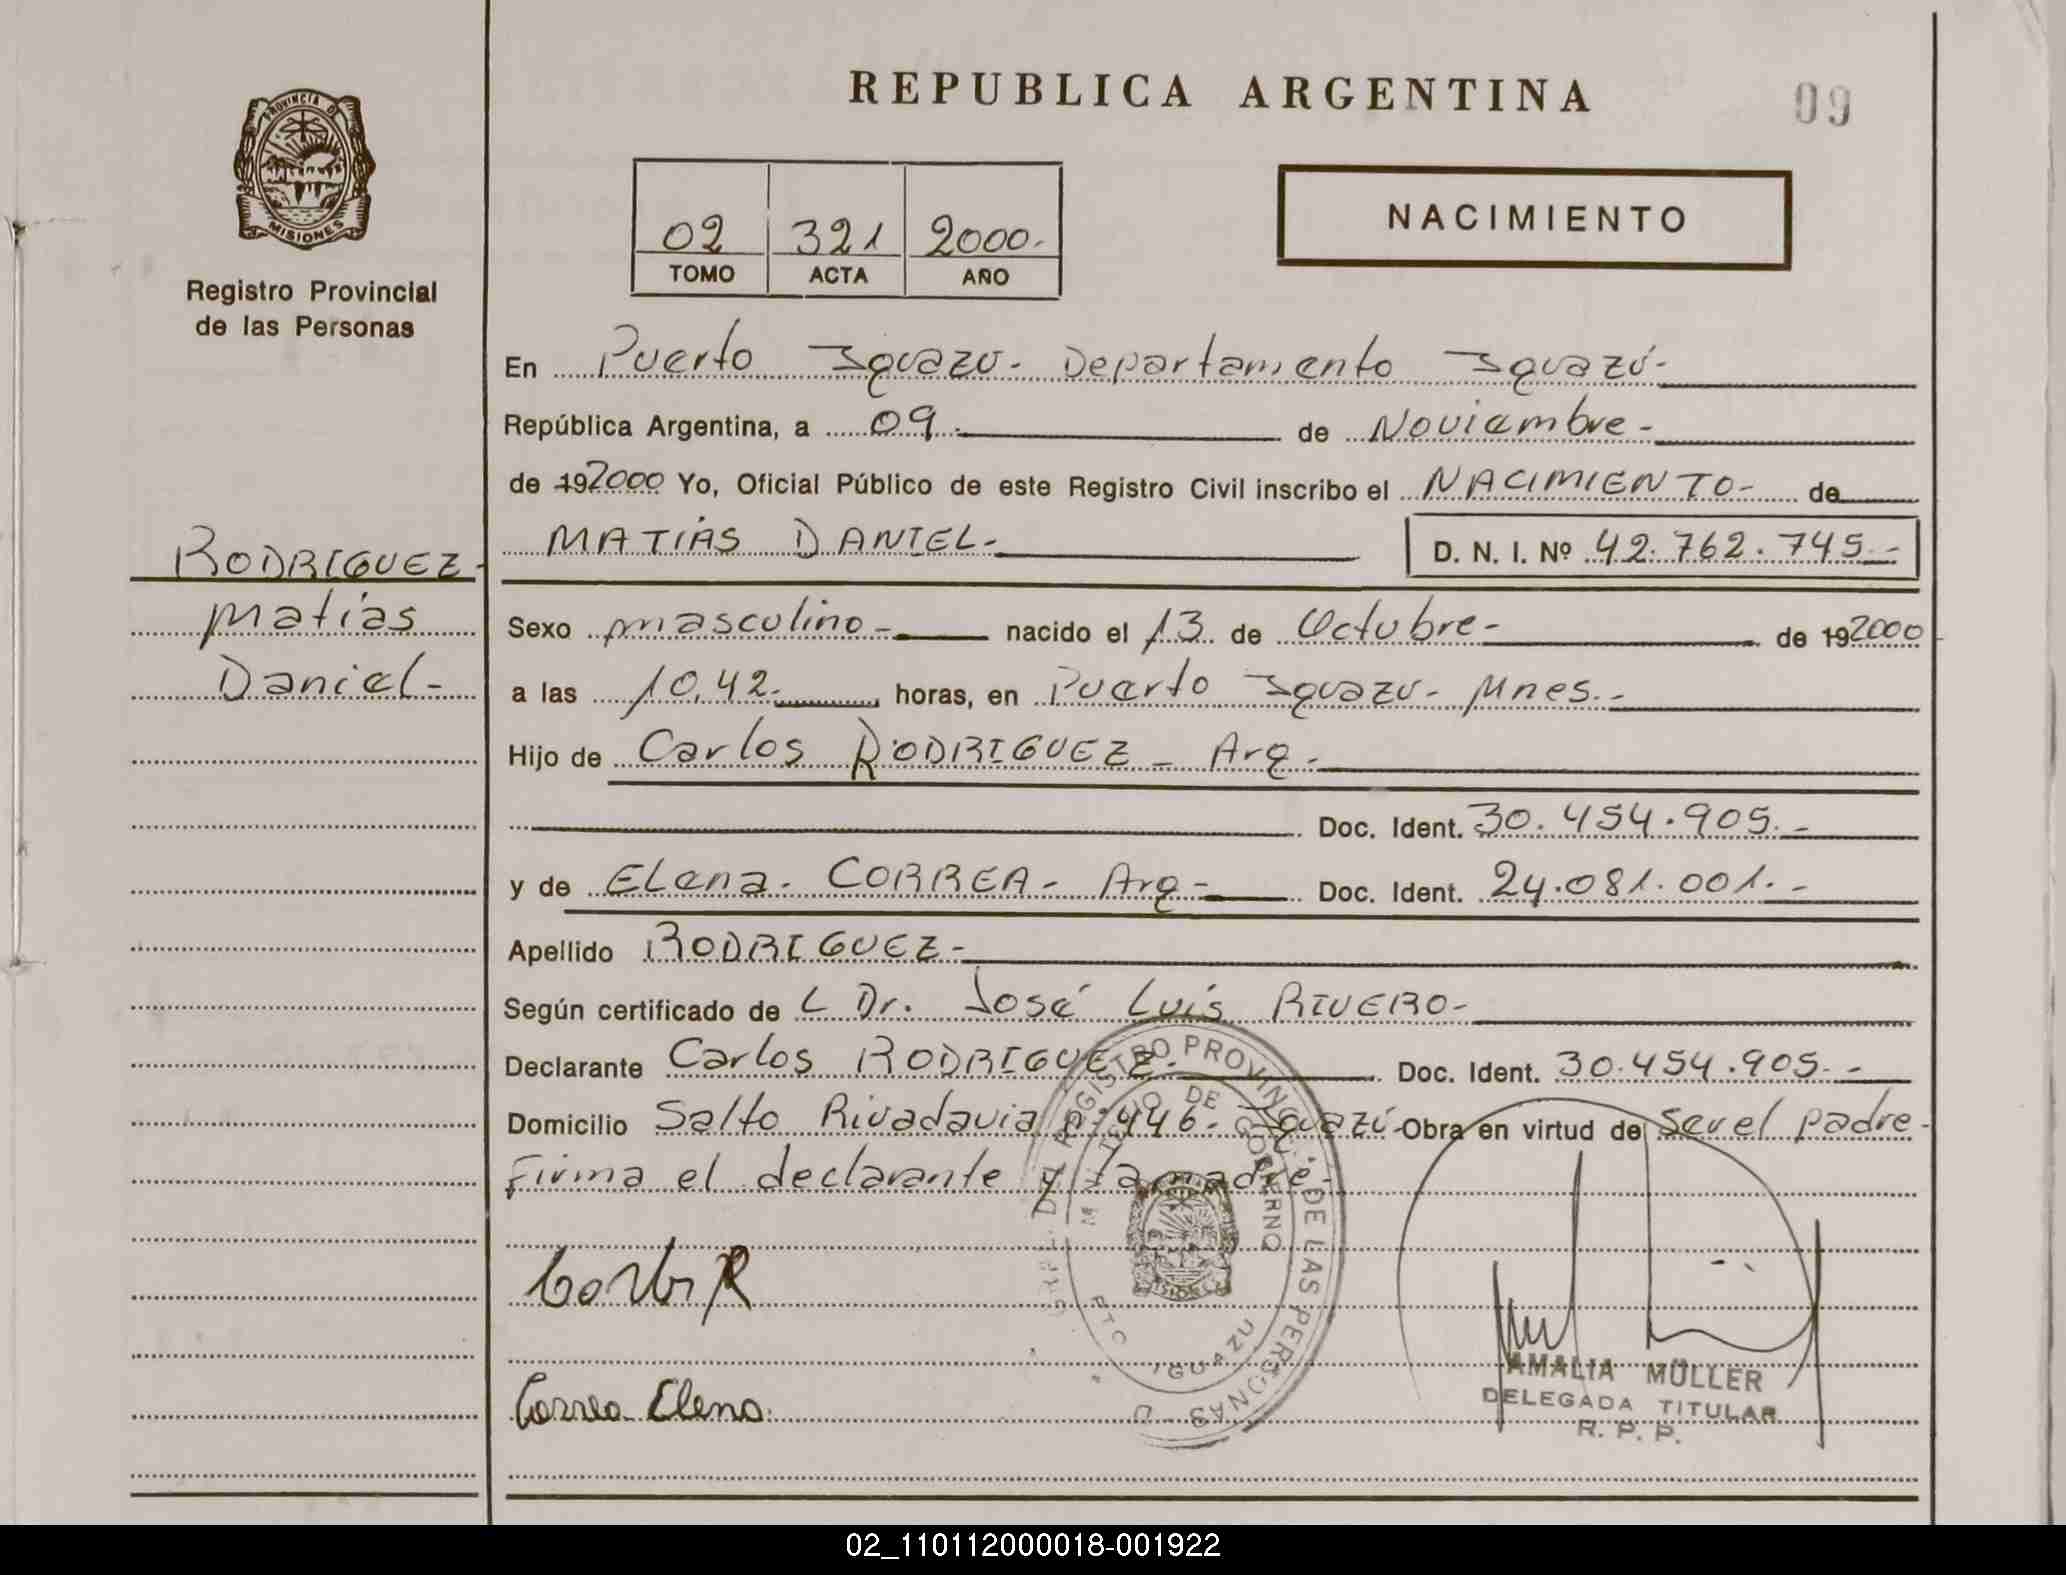 REPUBLICA ARGENTINA
09
PROVINCIA DE
MISIONES
Registro Provincial
de las Personas
02 321 2000.-
TOMO ACTA AÑO
NACIMIENTO
En Puerto Iguazú - Departamento Iguazú -
República Argentina, a 09.- de Noviembre -
de 192000 Yo, Oficial Público de este Registro Civil inscribo el NACIMIENTO - de
MATIAS DANIEL - D. N. I. Nº 42.762.745.-
RODRIGUEZ -
Matías
Daniel -
Sexo masculino - nacido el 13 de Octubre - de 192000
a las 10,42.- horas, en Puerto Iguazú - Mnes.-
Hijo de Carlos RODRIGUEZ - Arg -
Doc. Ident. 30.454.905.-
y de ELena - CORREA - Arg - Doc. Ident. 24.081.001.-
Apellido RODRIGUEZ -
Según certificado de L Dr. José Luis RIVERO -
Declarante Carlos RODRIGUEZ - Doc. Ident. 30.454.905.-
Domicilio Salto Rivadavia nº 446 - Iguazú - Obra en virtud de ser el padre -
Firma el declarante y la madre.
Correa Elena.
REGISTRO PROVINCIAL DE LAS PERSONAS
MINISTERIO DE GOBIERNO
PTO IGUAZU
AMALIA MÜLLER
DELEGADA TITULAR
R. P. P.
02_110112000018-001922